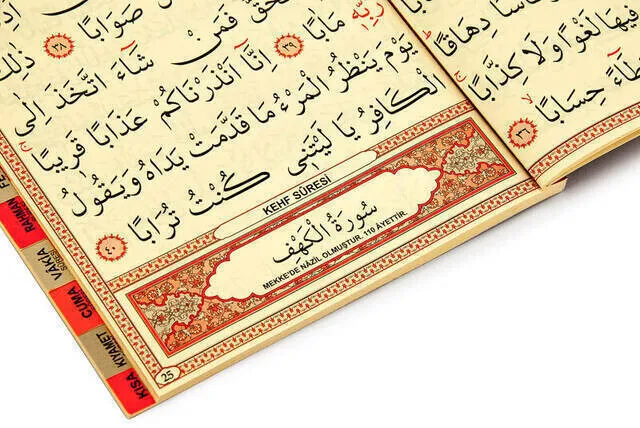 وَكَأْسًا دِهَاقًا
فِيهَا لَغْوًا وَلَا كِذَّابًا
حِسَابًا ٣٦
صَوَابًا ٣٨ ذٰلِكَ
الْحَقُّ فَمَنْ شَاءَ اتَّخَذَ اِلٰى
رَبِّهِ مَاٰبًا ٣٩ اِنَّا اَنْذَرْنَاكُمْ عَذَابًا قَرِيبًا
يَوْمَ يَنْظُرُ الْمَرْءُ مَا قَدَّمَتْ يَدَاهُ وَيَقُولُ
الْكَافِرُ يَا لَيْتَنِى كُنْتُ تُرَابًا ٤٠
KEHF SÛRESİ
سُورَةُ الْكَهْفِ
MEKKE'DE NÂZİL OLMUŞTUR. 110 ÂYETTİR.
25
RAHMAN
VAKIA
SÛRESİ
CUMA
KIYAMET
KISA